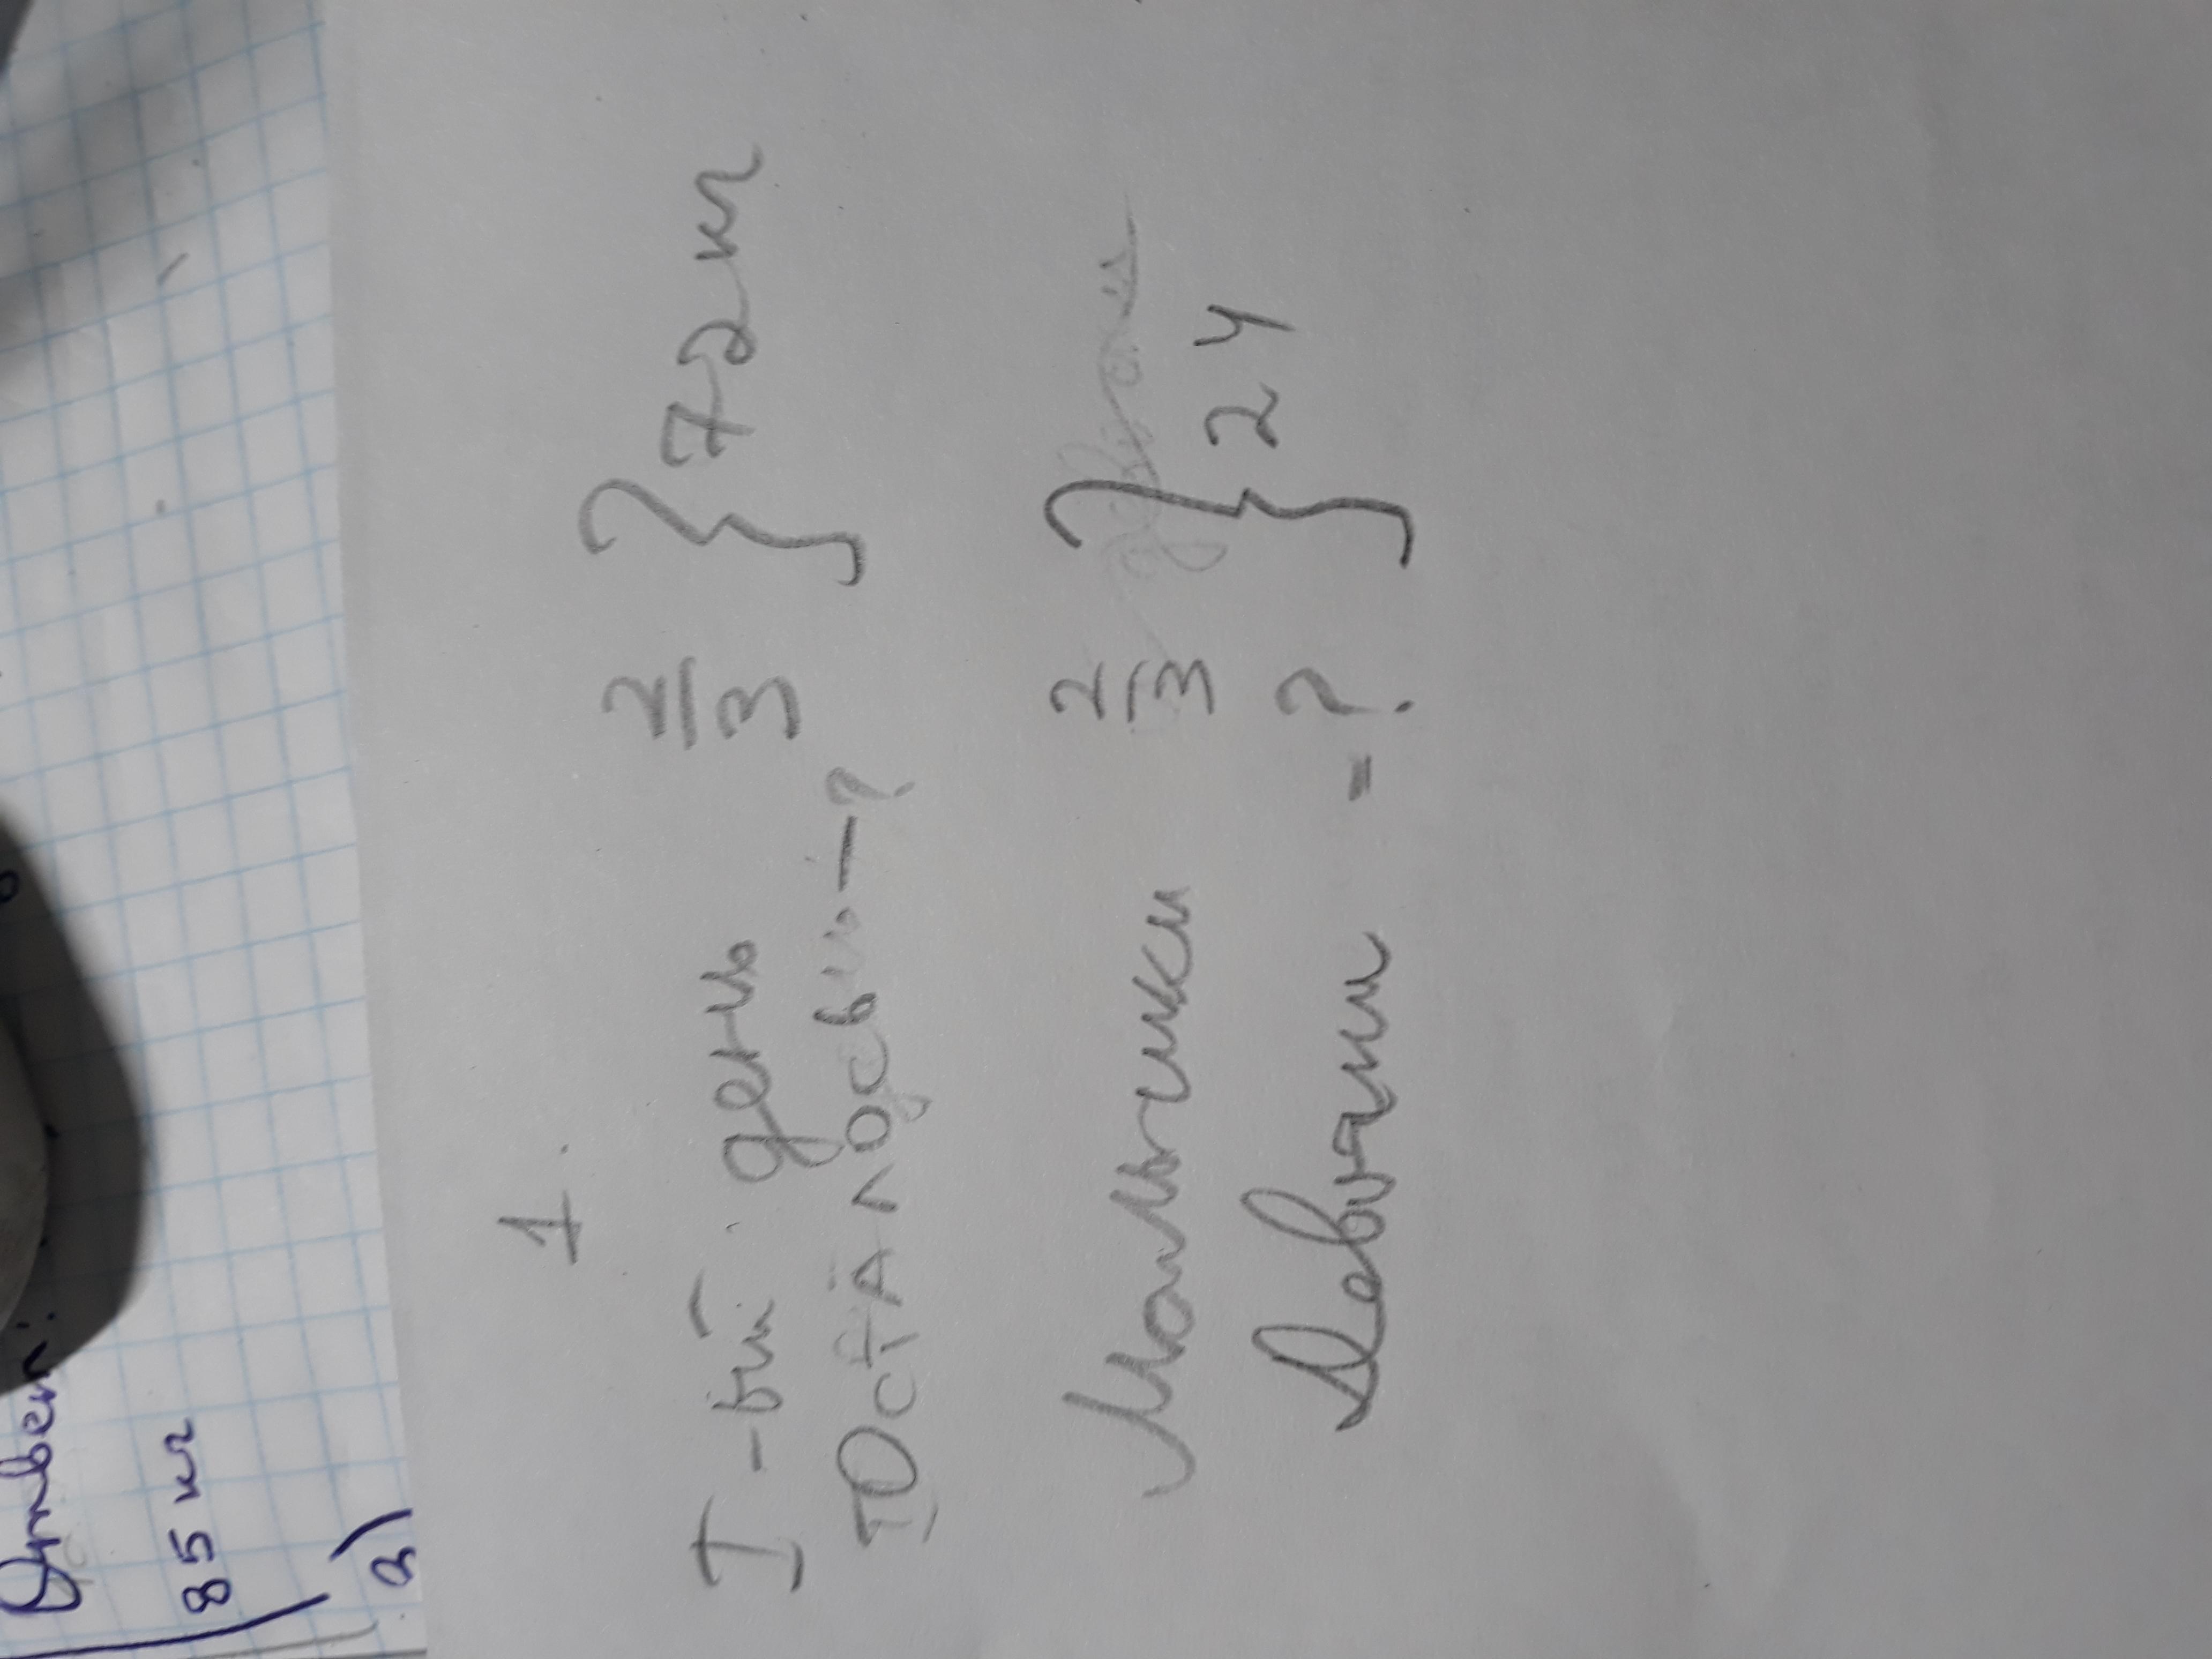 Ответ:
85 кг
а)
1.
I-вый день 2/3 } 72 кг
Осталось — ?
Мальчики 2/3 } 24
Девочки = ?